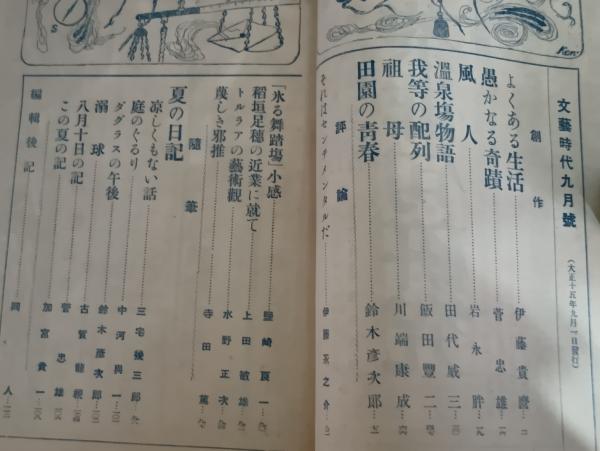 文藝時代九月號
(大正十五年九月一日發行)
創作
よくある生活 伊藤貴麿
愚かなる奇蹟 菅忠雄
風人 岩永胖
溫泉場物語 田代威三
我等の配列 飯田豐二
祖母 川端康成
田園の青春 鈴木彥次郎
評論
それはセンチメンタルだ 伊藤永之介
「氷る舞踏場」小感 鹽崎良一
稻垣足穗の近業に就て 上田敏雄
トルラアの藝術觀 水野正次
蔑しき邪推 寺田
夏の日記
隨筆
凉しくもない話 三宅幾三郎
庭のぐるり 中河與一
ダグラスの午後 鈴木彥次郎
溺球 古賀龍視
八月十日の記 菅忠雄
この夏の記 加宮貴一
編輯後記 同人